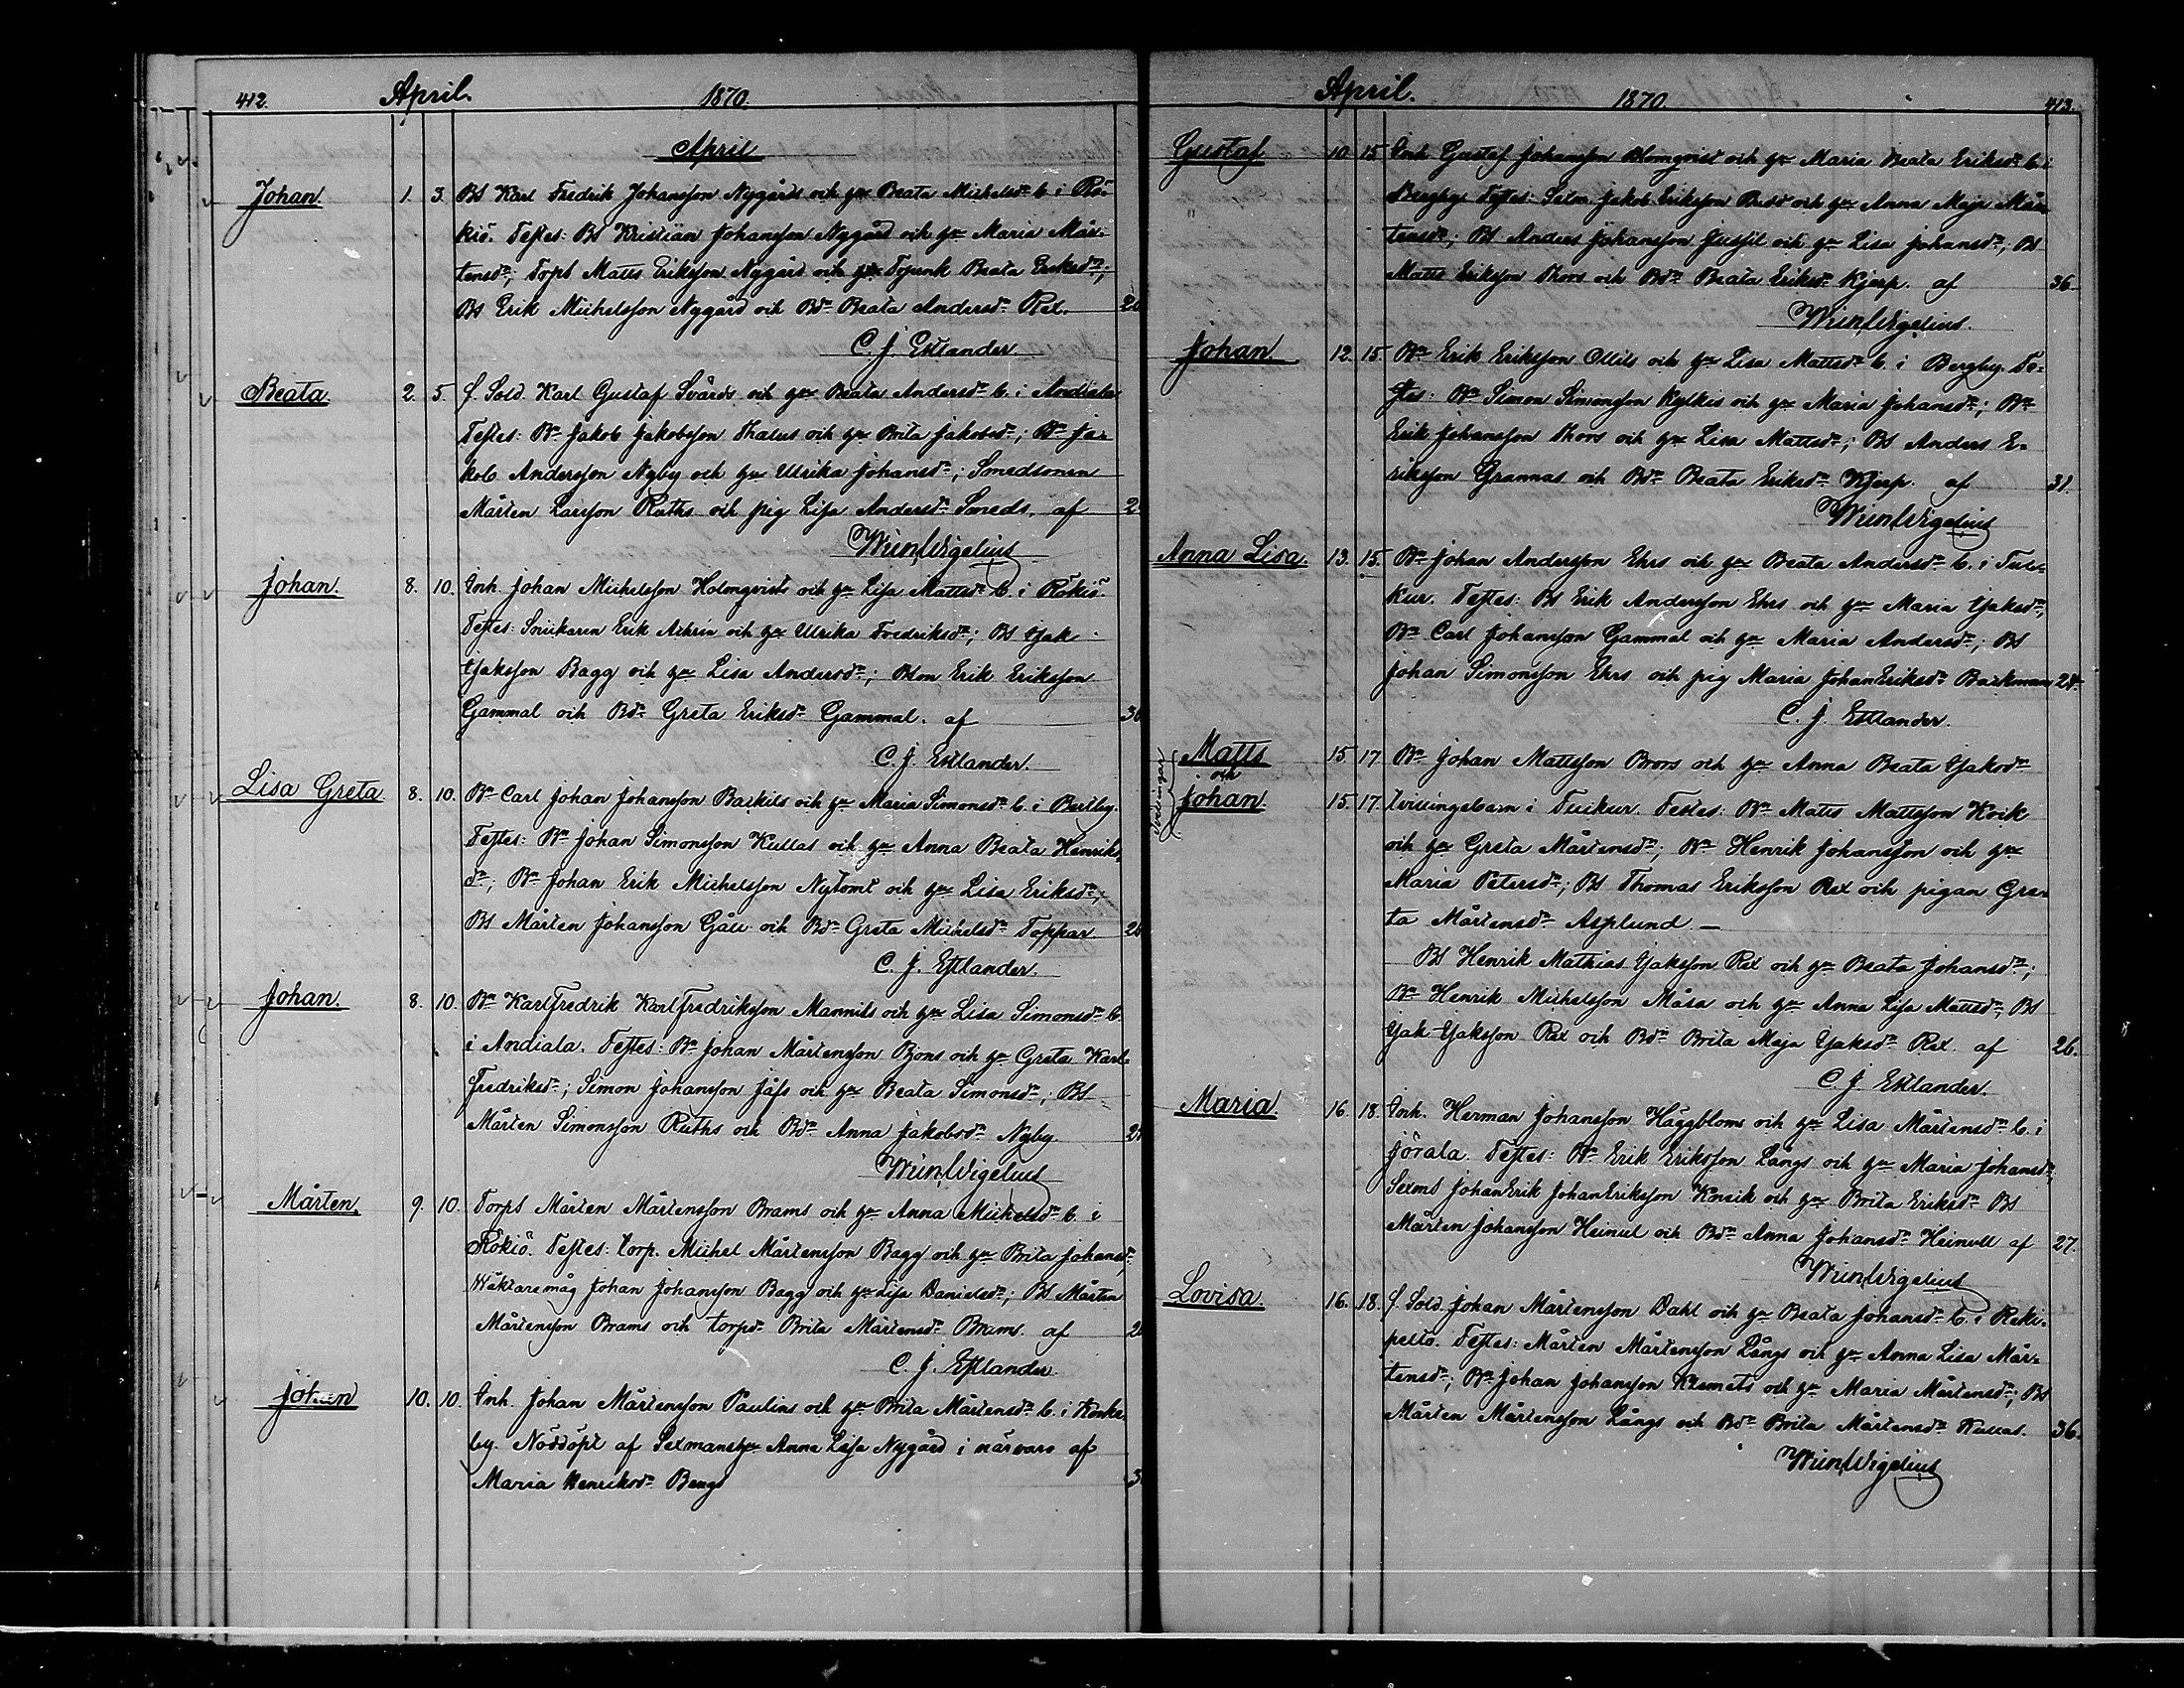 412. April. 1870.
April
Johan. 1. 3. Bs Karl Fredrik Johansson Nygårds och h:u Beata Michelsd:r b. i Rö-
kiö. Testes: Bs Kristian Johansson Nygård och h:u Maria Mår-
tensd:r; Torps Matts Eriksson Nygård och Torpenk Beata Eriksd:r;
Bs Erik Michelsson Nygård och Bd:r Beata Andersd:r Rex.
C. J. Estlander.
Beata 2. 5. f. Sold. Karl Gustaf Svärds och h:u Beata Andersd:r b. i Andiala
Testes: B:n Jakob Jakobsson Thalus och h:u Brita Jakobsd:r; B:n Ja-
kob Andersson Nyby och h:u Ulrika Johansd:r; Smedsonen
Mårten Larsson Ruths och pig Lisa Andersd:r Smeds. af
Wilh Wigelius
Johan. 8. 10. Inh. Johan Michelsson Holmqvists och h:u Lisa Mattsd:r b. i Rökiö.
Testes: Snickaren Erik Achrén och h:u Ulrika Fredriksd:r; Bs Isak
Isaksson Bagg och h:u Lisa Andersd:r; Bson Erik Eriksson
Gammal och Bd:r Greta Eriksd:r Gammal. af 30
C. J. Estlander.
Lisa Greta 8. 10. B:n Carl Johan Johansson Backils och h:u Maria Simonsd:r b. i Bertby.
Testes: B:n Johan Simonsson Kullas och h:u Anna Beata Henriks
d:r; B:n Johan Erik Michelsson Nytomt och h:u Lisa Eriksd:r;
Bs Mårten Johansson Gåll och Bd:r Greta Michelsd:r Toppar
C. J. Estlander.
Johan. 8. 10. B:n Karl Fredrik Karl Fredriksson Mannils och h:u Lisa Simonsd:r b.
i Andiala. Testes: B:n Johan Mårtensson Bjons och h:u Greta Karl
Fredriksd:r; Simon Johansson Jåfs och h:u Beata Simonsd:r; Bs
Mårten Simonsson Ruths och Bd:r Anna Jakobsd:r Nyby.
Wilh Wigelius
Mårten. 9. 10. Torps Mårten Mårtensson Brams och h:u Anna Michelsd:r b. i
Rökiö. Testes: torp. Michel Mårtensson Bagg och h:u Brita Johansd:r;
Wäktaremåg Johan Johansson Bagg och h:u Lisa Danielsd:r; Bs Mårten
Mårtensson Brams och torpd:r Brita Mårtensd:r Brams. af
C. J. Estlander.
Johan 10. 10. Inh. Johan Mårtensson Paulins och h:u Brita Mårtensd:r b. i Koske-
by. Nöddöpt af Sexmansh:u Anna Lisa Nygård i närvaro af
Maria Henriksd:r Bengs
April. 1870. 413.
Gustaf 10. 15. Inh. Gustaf Johansson Blomqvist och h:u Maria Beata Eriksd:r b. i
Bergby. Testes: Jakob Eriksson Budd och h:u Anna Maja Mår-
tensd:r; Bs Anders Johansson Jussil och h:u Lisa Johansd:r; Bs
Matts Eriksson Thors och Bd:r Beata Eriksd:r Kjerp. af 36.
Wilh Wigelius.
Johan 12. 15. B:n Erik Eriksson Ollils och h:u Lisa Mattsd:r b. i Bergby. Te-
stes: B:n Simon Simonsson Kylkis och h:u Maria Johansd:r; B:n
Erik Johansson Thors och h:u Lisa Mattsd:r; Bs Anders E-
riksson Grannas och Bd:r Beata Eriksd:r Kjerp. af 31.
Wilh Wigelius
Anna Lisa. 13. 15. B:n Johan Andersson Ehrs och h:u Beata Andersd:r b. i Tuc-
kur. Testes: Bs Erik Andersson Ehrs och h:u Maria Isaksd:r;
B:n Carl Johansson Gammal och h:u Maria Andersd:r; Bs
Johan Simonsson Ehrs och pig Maria JohanEriksd:r Backman 24.
C. J. Estlander.
Matts 15 17 B:n Johan Mattsson Brors och h:u Anna Beata Isaksd:r
och
Johan. 15. 17. tvillingebarn i Tuckur. Testes: B:n Matts Mattsson Kvik
tvillingar
och h:u Greta Mårtensd:r; B:n Henrik Johansson och h:u
Maria Petersd:r; Bs Thomas Eriksson Rex och pigan Gre-
ta Mårtensd:r Asplund —
Bs Henrik Mathias Isaksson Rex och h:u Beata Johansd:r;
B:n Henrik Michelsson Måsa och h:u Anna Lisa Mattsd:r; Bs
Isak Isaksson Rex och Bd:r Brita Maja Isaksd:r Rex. af 26.
C. J. Estlander.
Maria. 16. 18. Inh. Herman Johansson Häggbloms och h:u Lisa Mårtensd:r b. i
Jörala. Testes: B:n Erik Eriksson Långs och h:u Maria Johansd:r;
Sexms JohanErik JohanEriksson Knsik och h:u Brita Eriksd:r Bs
Mårten Johansson Heinull och Bd:r Anna Johansd:r Heinull af 27.
Wilh Wigelius
Lovisa. 16. 18. f. Sold. Johan Mårtensson Dahl och h:u Beata Johansd:r b. i Reki-
pelto. Testes: Mårten Mårtensson Långs och h:u Anna Lisa Mår-
tensd:r; B:n Johan Johansson Klemets och h:u Maria Mårtensd:r; Bs
Mårten Mårtensson Långs och Bd:r Brita Mårtensd:r Kullas. 36.
Wilh Wigelius